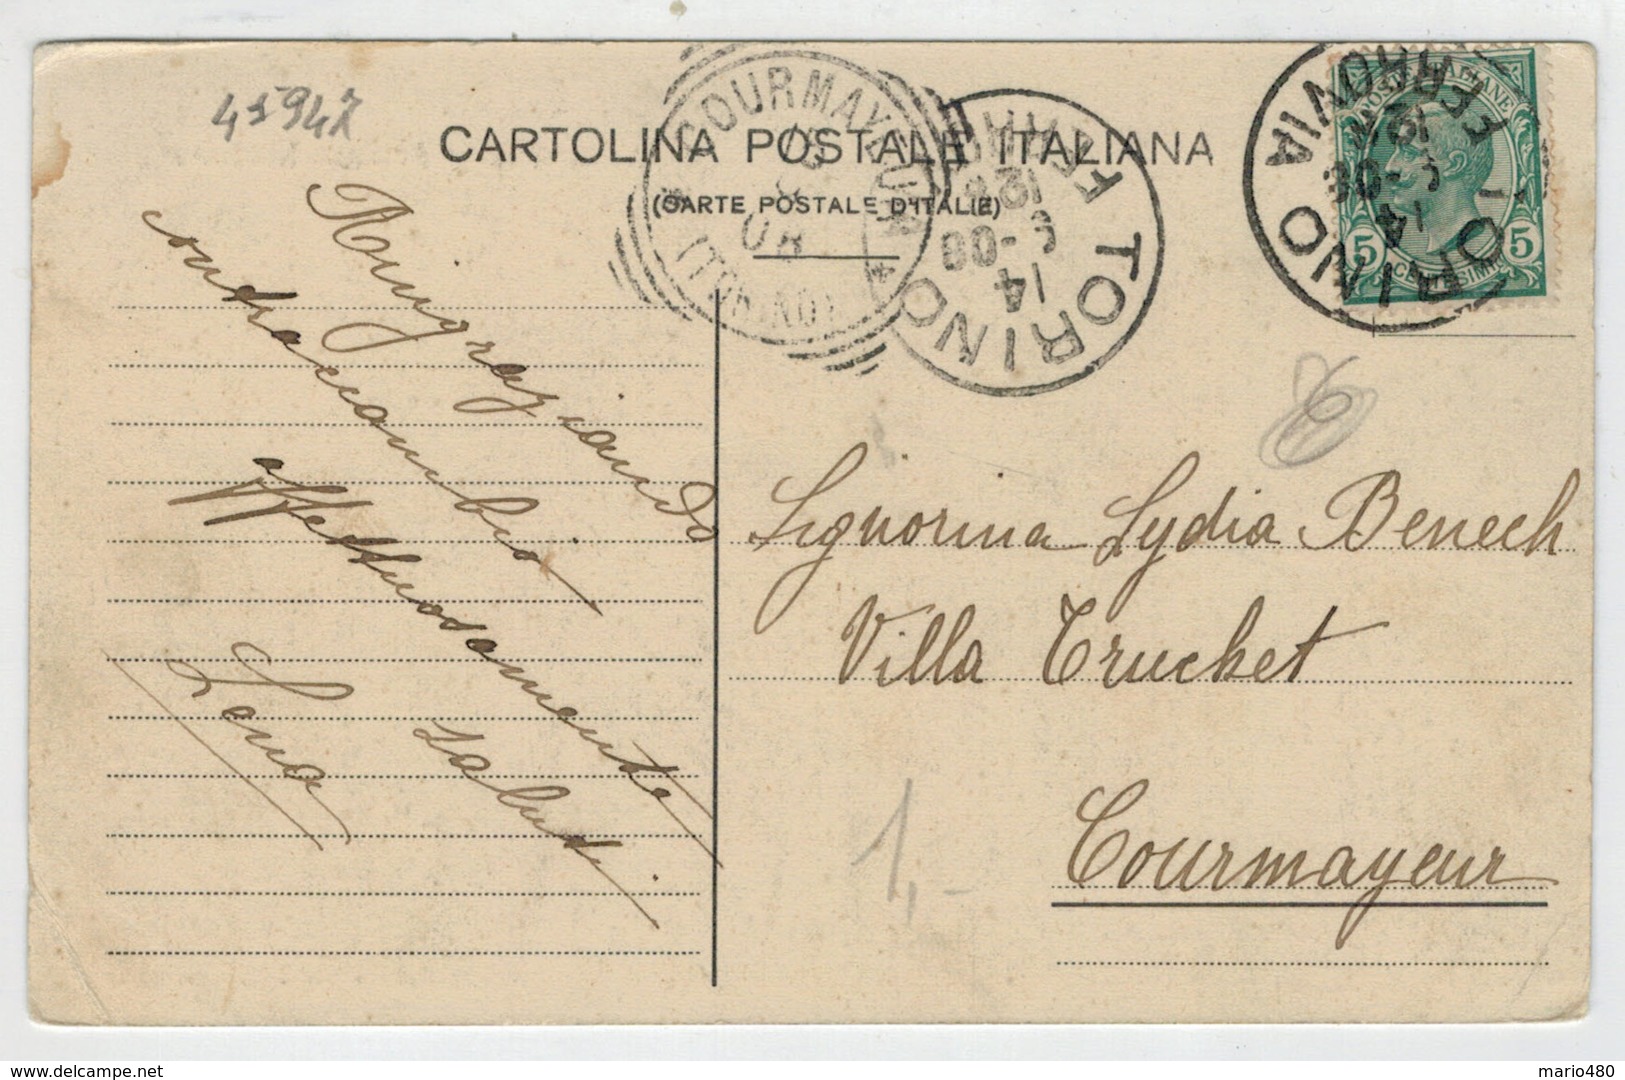 41947
CARTOLINA POSTALE ITALIANA
(CARTE POSTALE D'ITALIE)
COURMAYEUR
(TORINO)
08
TORINO FERROVIA
14
-08
12
POSTE ITALIANE
5 5
CENTESIMI
TORINO FERROVIA
14
-08
12
Ringraziando
contraccambio
affettuosamente
saluti
Lena
Signorina Lydia Benech
Villa Truchet
Courmayeur
1,-
mario480